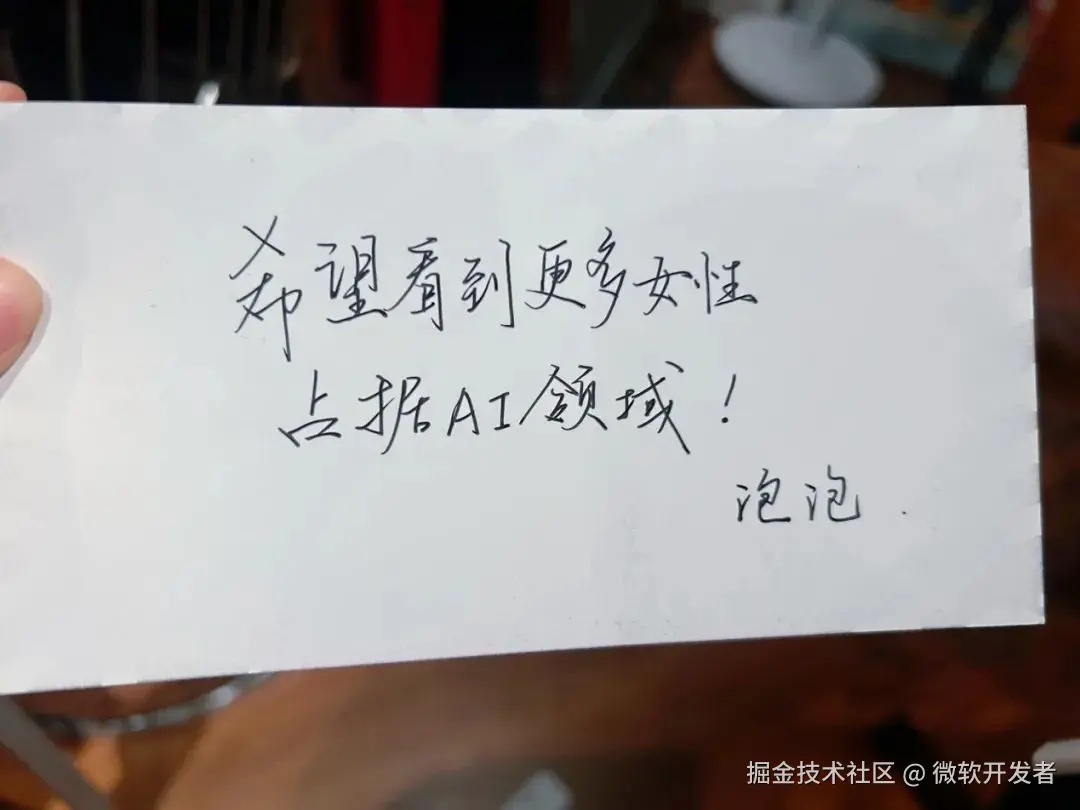 希望看到更多女性
占据AI领域！
泡泡.
掘金技术社区 @ 微软开发者